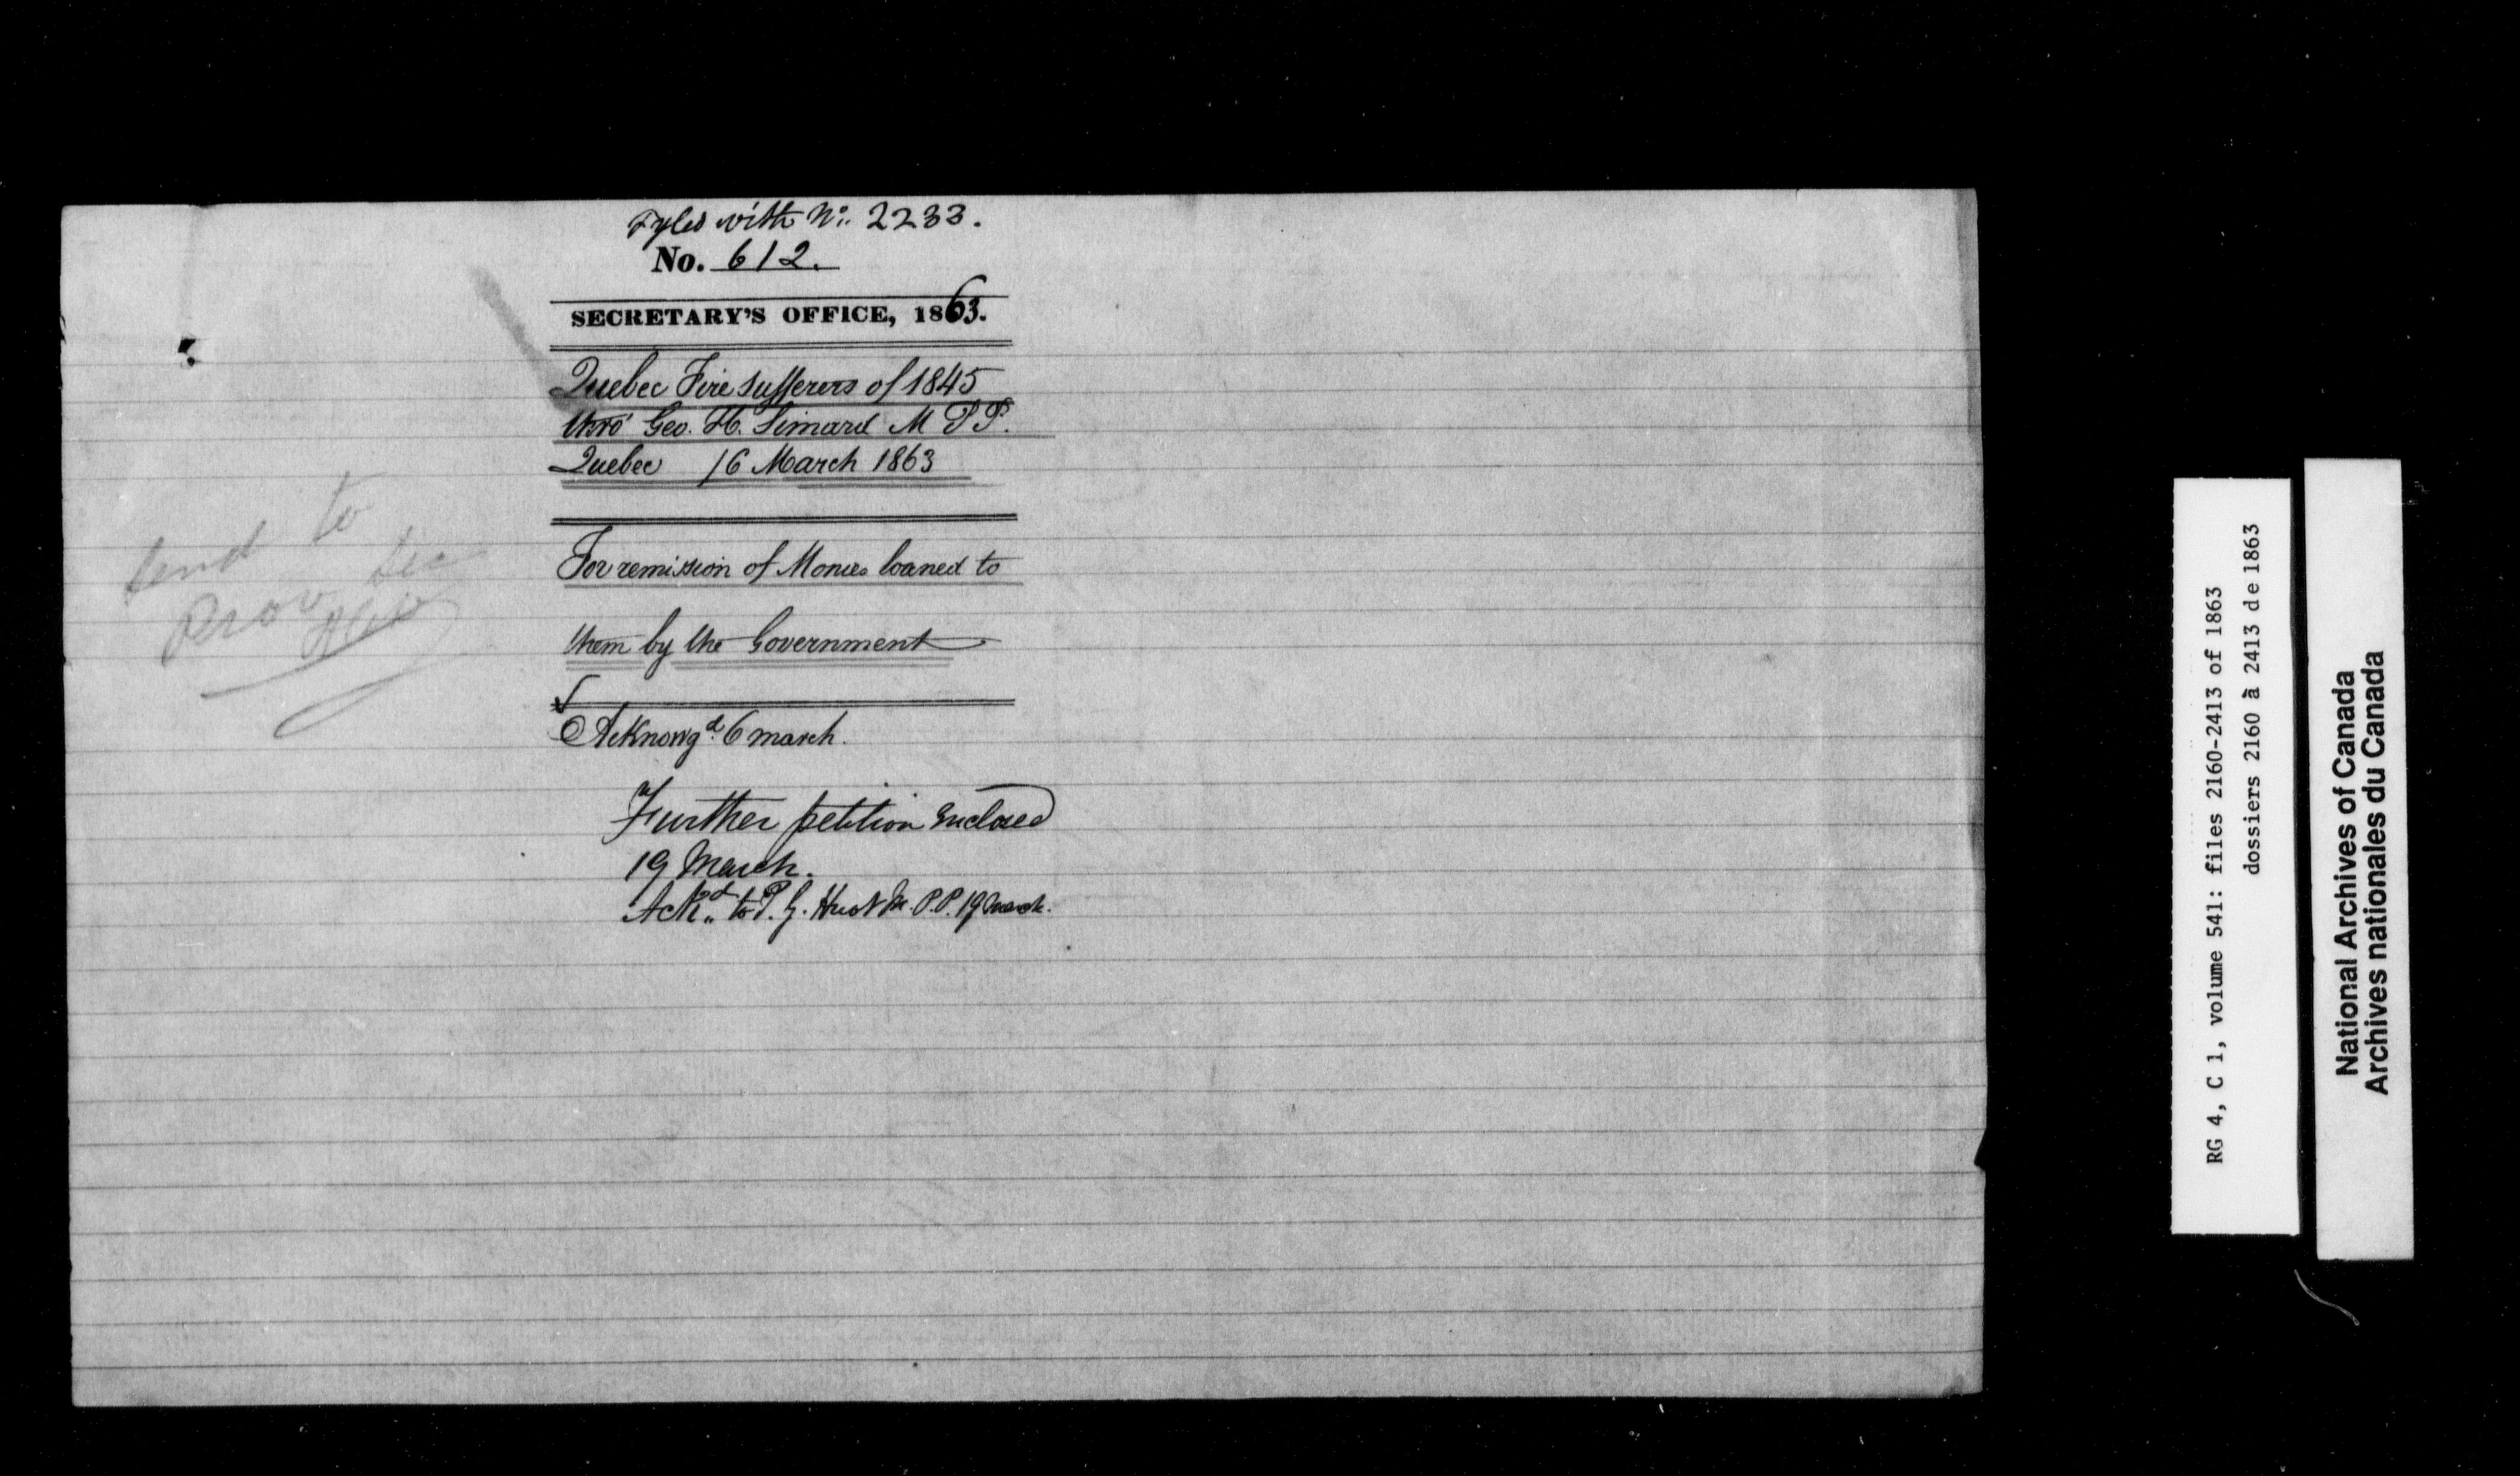 Fyled with No. 2233.
No. 612.
SECRETARY'S OFFICE, 1863.
Quebec Fire sufferers of 1845
thro' Geo. H. Simard M P P.
Quebec 16 March 1863
For remission of Monies loaned to
them by the Government
Acknowgd. 6 march.
Further petition enclosed
19 March.
Ackd. to P. G. Huot M. P.P. 19 March.
Send to
Prov Sec
RG 4, C 1, volume 541: files 2160-2413 of 1863
dossiers 2160 à 2413 de 1863
National Archives of Canada
Archives nationales du Canada